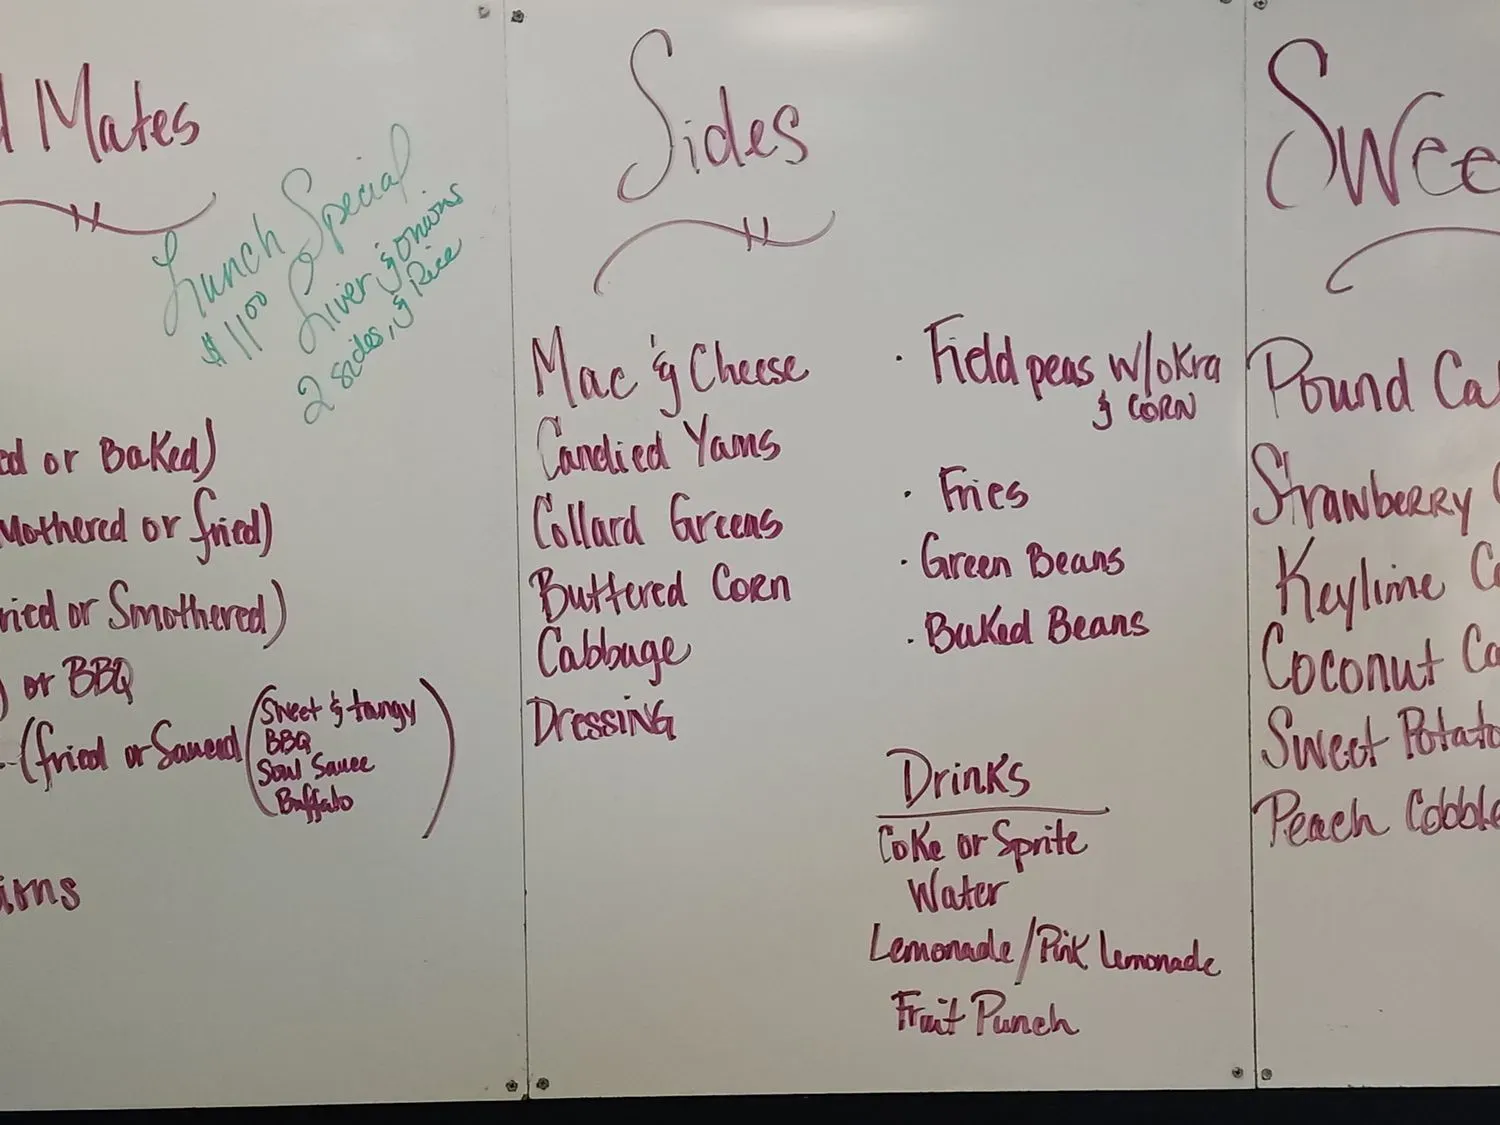 Mates
Lunch Special
$11.00 Liver & Onions
2 sides, & Rice
or Baked)
Mothered or fried)
ried or Smothered)
) or BBQ
(fried or Sauced (Sweet & tangy
BBQ
Soul Sauce
Buffalo)
ions
Sides
Mac & Cheese
Candied Yams
Collard Greens
Buttered Corn
Cabbage
Dressing
· Field peas w/okra
& CORN
· Fries
· Green Beans
· Baked Beans
Drinks
Coke or Sprite
Water
Lemonade/Pink Lemonade
Fruit Punch
Swee
Pound Ca
Strawberry C
Keylime Ca
Coconut Ca
Sweet Potato
Peach Cobble